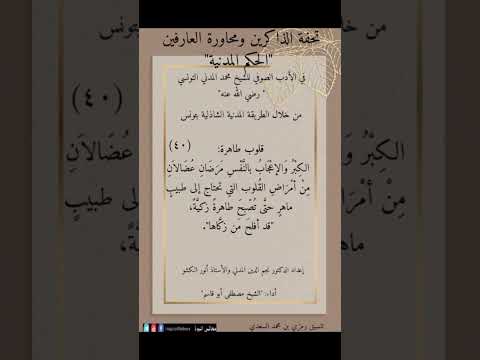 تحفة الذاكرين ومحاورة العارفين
"الحكم المدنية"
في الأدب الصوفي للشيخ محمد المدني التونسي
"رضي الله عنه"
من خلال الطريقة المدنية الشاذلية بتونس
قلوب طاهرة: (٤٠)
الكِبْرُ وَالإعْجَابُ بالنَّفْسِ مَرَضَانِ عُضَالاَنِ
مِنْ أمْرَاضِ القُلوبِ التي تحتاج إلى طبيبٍ
ماهرٍ حتَّى تُصْبِحَ طاهرةً زكيَّةً،
"قد أفلحَ مَن زكَّاها".
إعداد الدكتور نجم الدين المدني والأستاذ أنور الكشو
أداء: "الشيخ مصطفى أبو قاسم"
تنسيق رمزي بن محمد السعدي